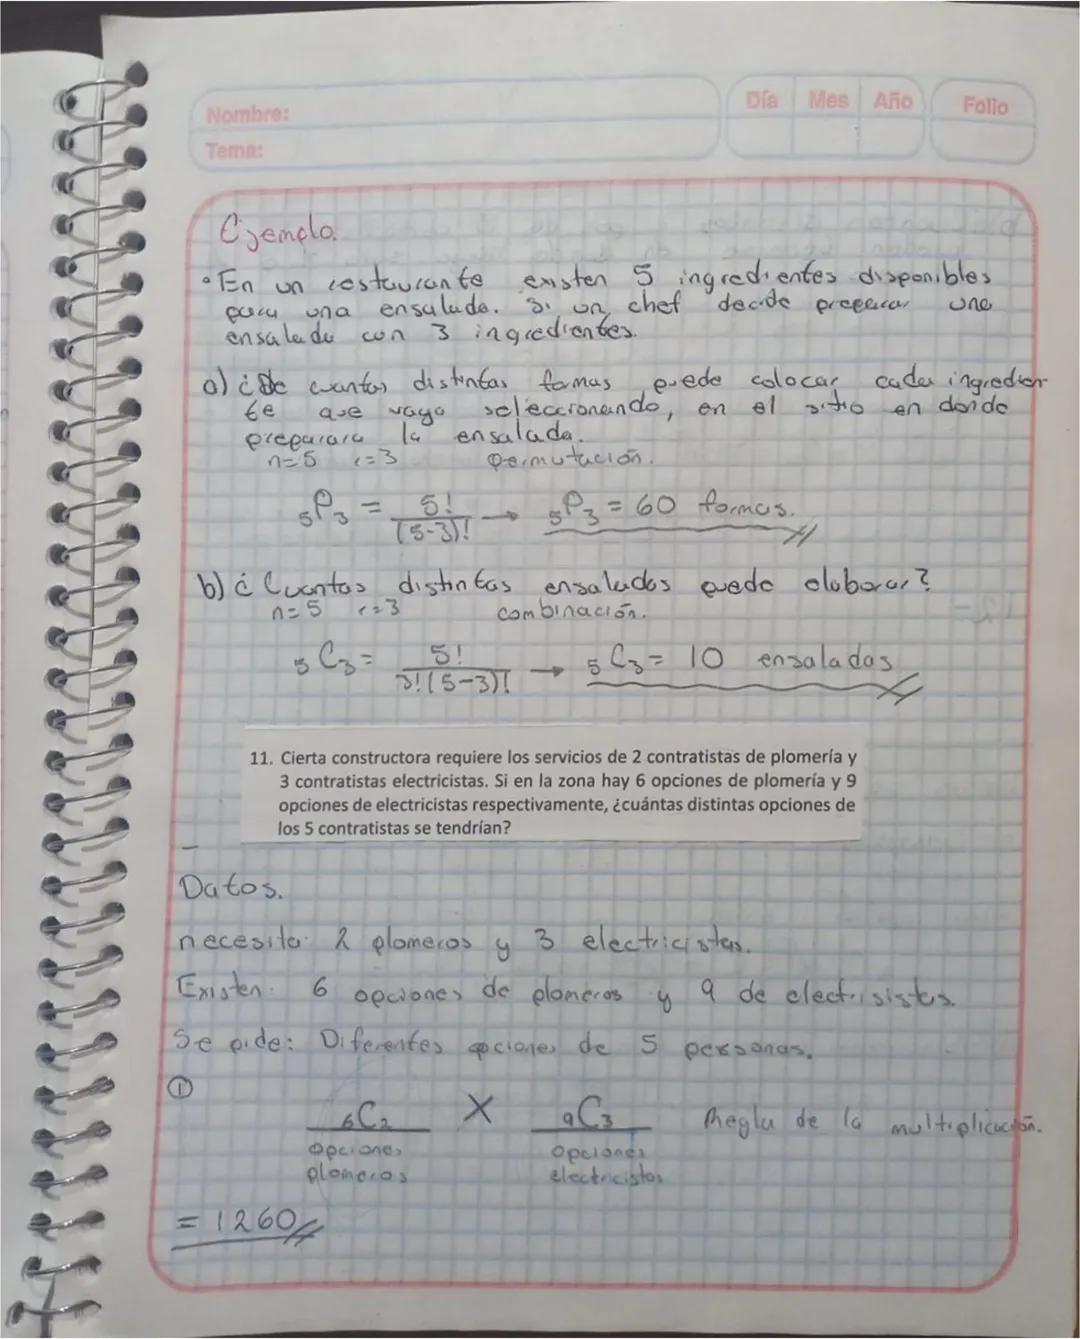 Nombre:
Día Mes Año
Folio
Tema:
Ejemplo.
• En un restaurante existen 5 ingredientes disponibles
para una ensalada. Si un chef decide preparar una
ensalada con 3 ingredientes.
a) ¿De cuantas distintas formas puede colocar cada ingredien
te que vaya seleccionando, en el sitio en donde
preparara la ensalada.
n=5 r=3 Permutación.
₅P₃ = 5!/(5-3)! → ₅P₃ = 60 formas.
b) ¿Cuantas distintas ensaladas puede elaborar?
n=5 r=3 combinación.
₅C₃ = 5!/3!(5-3)! → ₅C₃ = 10 ensaladas
11. Cierta constructora requiere los servicios de 2 contratistas de plomería y
3 contratistas electricistas. Si en la zona hay 6 opciones de plomería y 9
opciones de electricistas respectivamente, ¿cuántas distintas opciones de
los 5 contratistas se tendrían?
Datos.
necesita: 2 plomeros y 3 electricistas.
Existen: 6 opciones de plomeros y 9 de electrisistas.
Se pide: Diferentes opciones de 5 personas.
①
₆C₂ X ₉C₃ Regla de la multiplicación.
opciones opciones
plomeros electricistas
= 1260